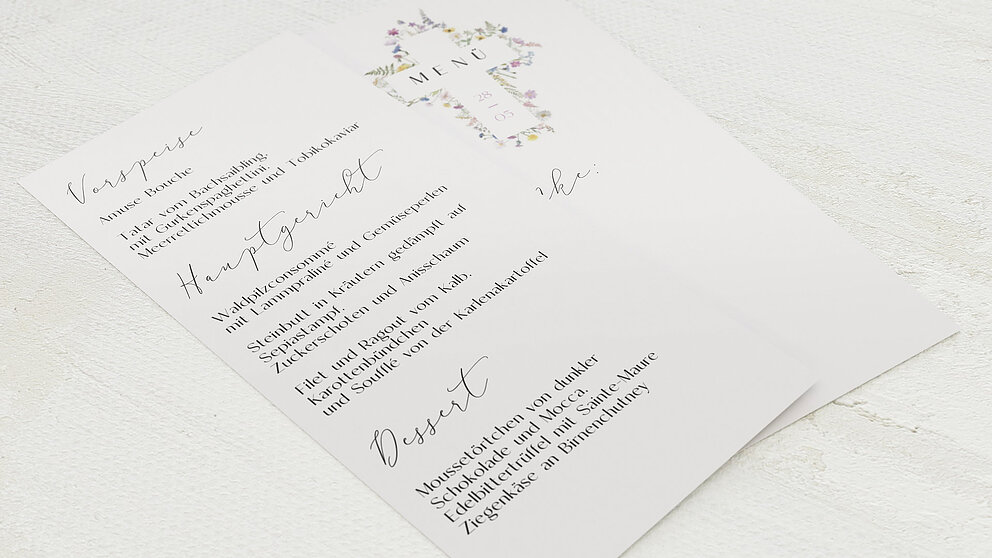 MENÜ
28
05
Vorspeise
Amuse Bouche
Tatar vom Bachsaibling,
mit Gurkenspaghettini,
Meerrettichmousse und Tobikokaviar
Hauptgericht
Waldpilzconsommé
mit Lammpraliné und Gemüseperlen
Steinbutt in Kräutern gedämpft auf
Sepiastampf,
Zuckerschoten und Anisschaum
Filet und Ragout vom Kalb,
Karottenbündchen
und Soufflé von der Karlenakartoffel
Dessert
Moussetörtchen von dunkler
Schokolade und Mocca,
Edelbittertrüffel mit Sainte-Maure
Ziegenkäse an Birnenchutney